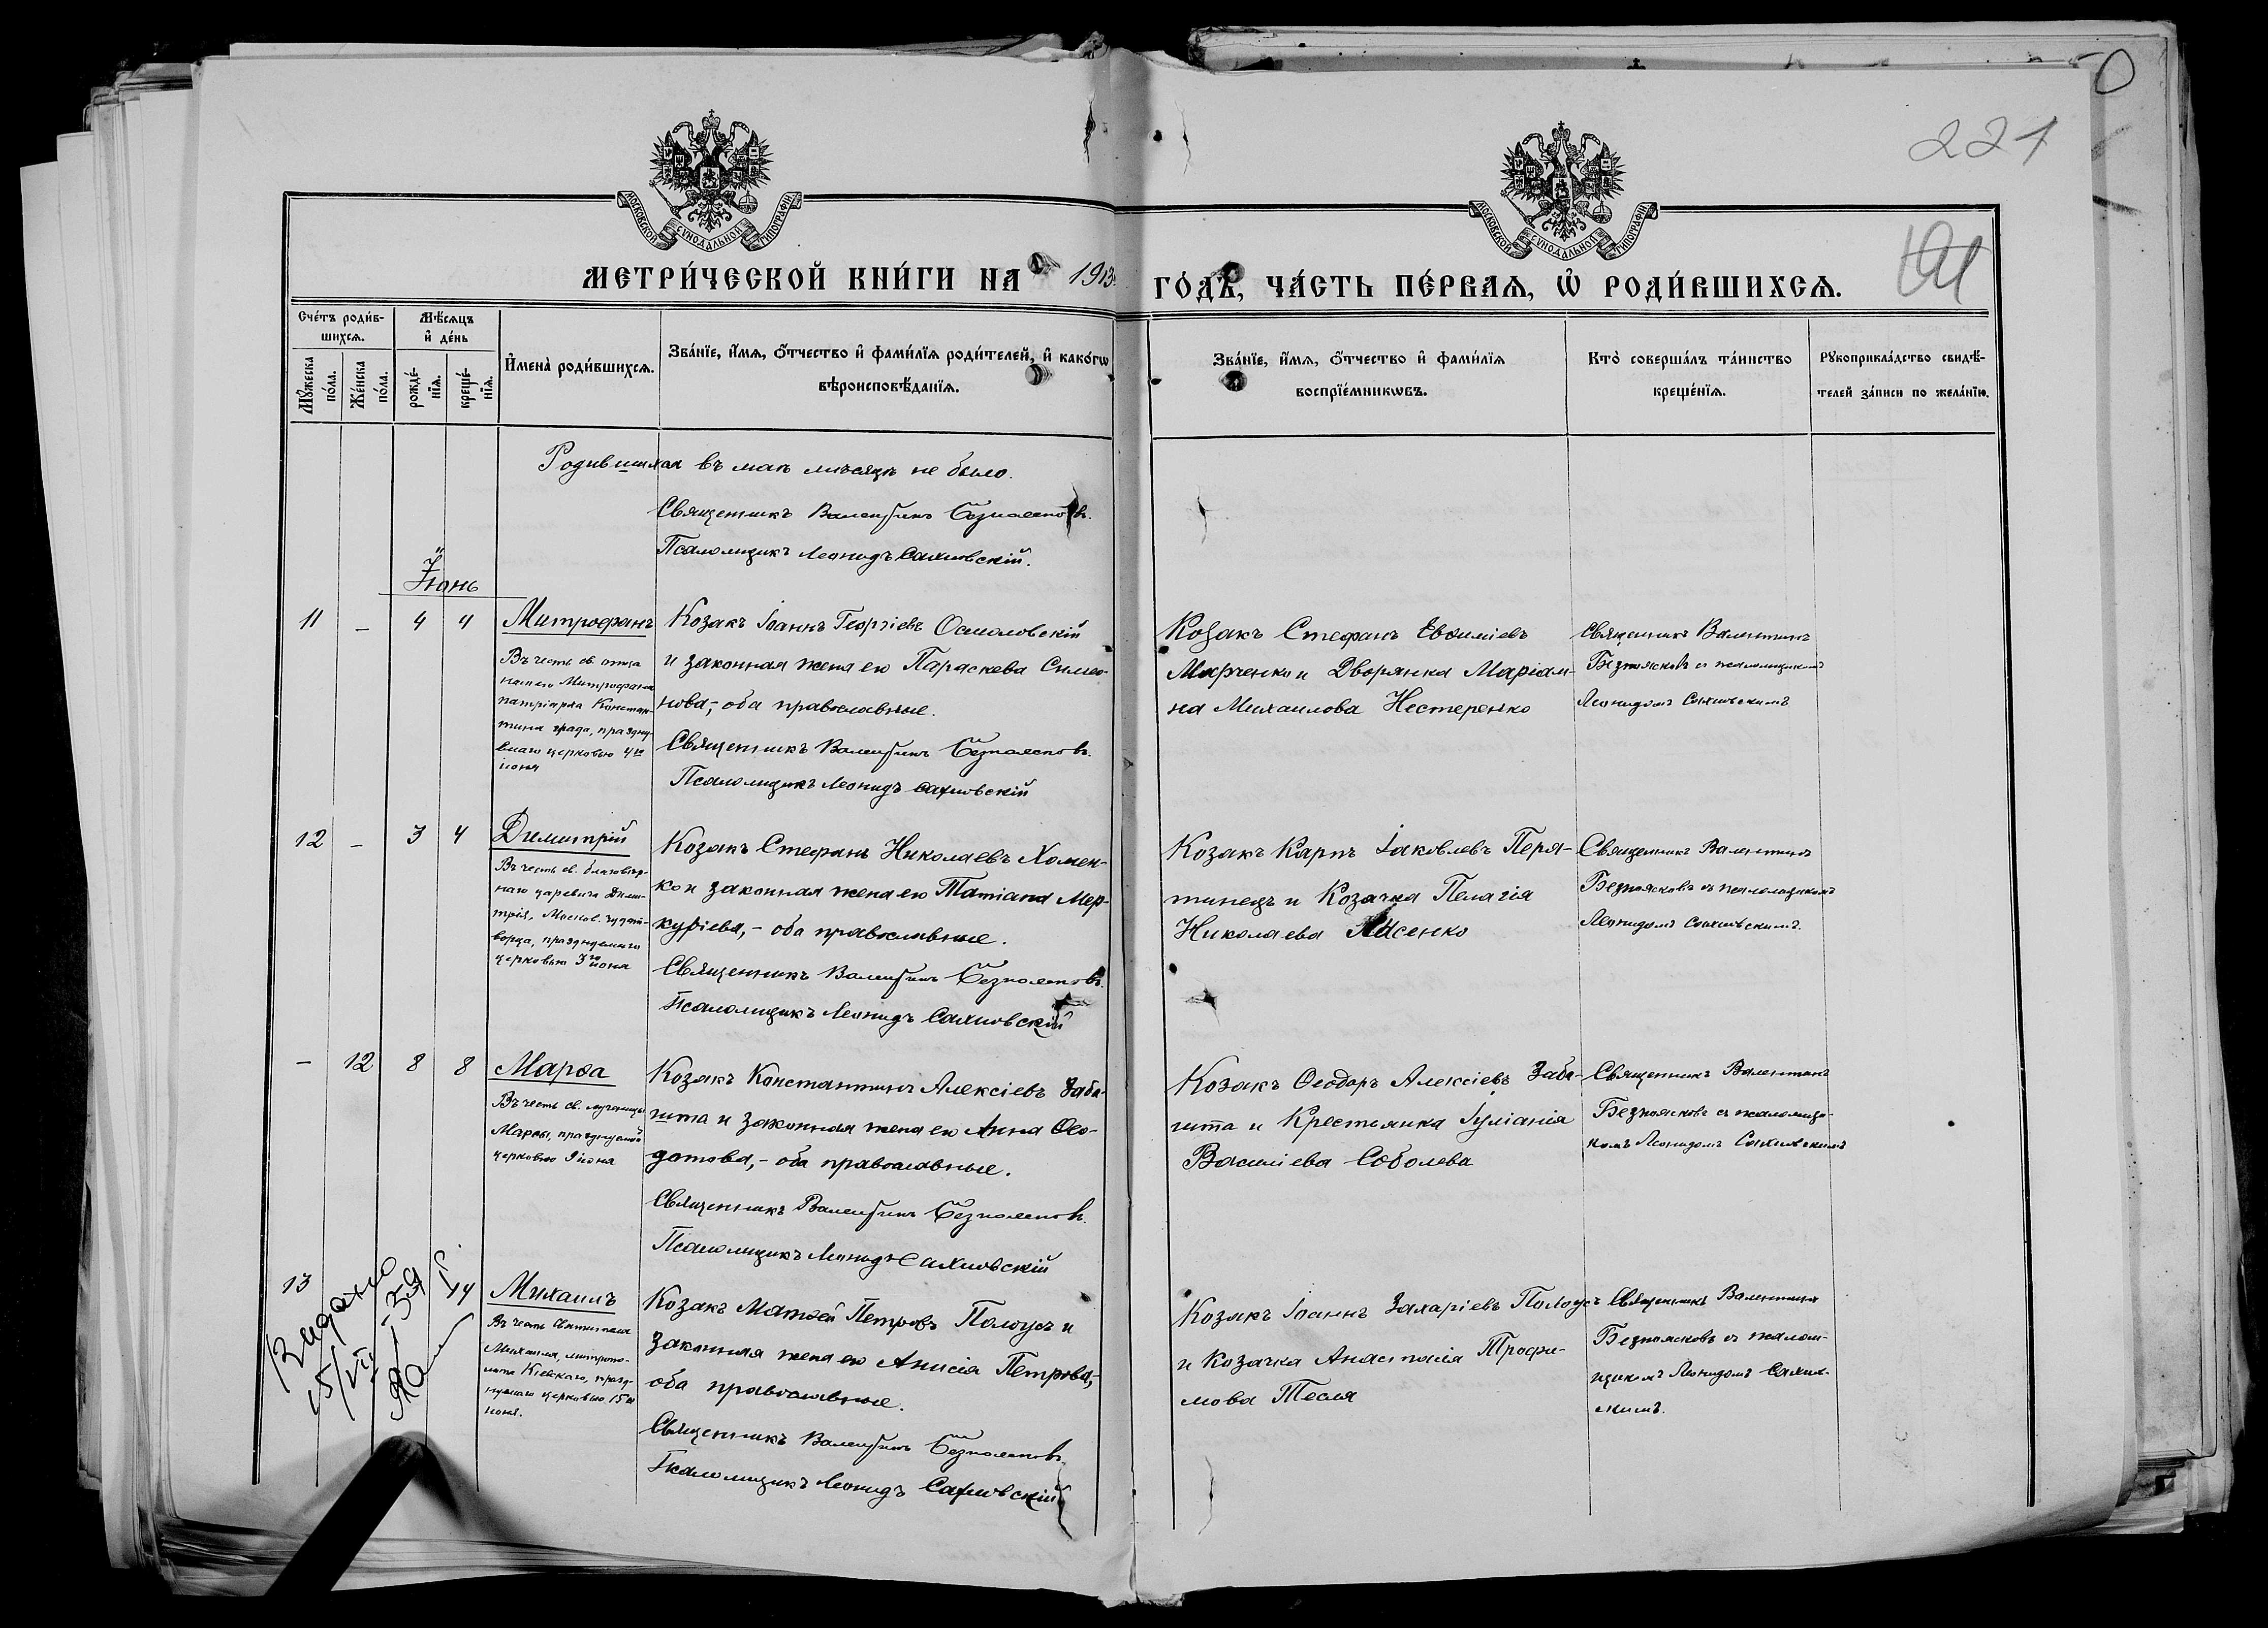 221
МОСКОВСКОЙ СУНОДАЛЬНОЙ ТИПОГРАФІИ
МОСКОВСКОЙ СУНОДАЛЬНОЙ ТИПОГРАФІИ
МЕТРИ́ЧЕСКОЙ КНИ́ГИ НА 1913 ГО́ДЪ, ЧА́СТЬ ПЕ́РВАѦ, Ѡ҆ РОДИ́ВШИХСѦ.
Сче́тъ роди́в-
шихсѧ.
Мꙋ́жеска по́ла.
Же́нска по́ла.
Мѣ́сѧцъ
и҆ де́нь
рожде́-
нїѧ.
креще́-
нїѧ.
И҆мена̀ роди́вшихсѧ.
Зва́нїе, и҆́мѧ, ѻ҆́тчество и҆ фами́лїѧ роди́телей, и҆ како́гѡ
вѣроисповѣ́данїѧ.
Зва́нїе, и҆́мѧ, ѻ҆́тчество и҆ фами́лїѧ
воспрїе́мникѡвъ.
Кто̀ соверша́лъ та́инство
креще́нїѧ.
Рꙋкоприкла́дство свидѣ́-
телей за́писи по жела́нїю.
Родившихся въ маѣ мѣсяцѣ не было.
Священникъ Валентинъ Безпоясковъ.
Псаломщикъ Леонидъ Сахновскій.
Іюнь
11 – 4 4 Митрофанъ
Въ честь св. отца
нашего Митрофана
патріарха Констан-
тина града, праздну-
емаго церковью 4го
іюня
Козакъ Іоаннъ Георгіевъ Осмоловскій
и законная жена его Параскева Симео-
нова,- оба православные.
Священникъ Валентинъ Безпоясковъ.
Псаломщикъ Леонидъ Сахновскій
Козакъ Стефанъ Евѳиміевъ
Марченко и Дворянка Маріам-
на Михаилова Нестеренко
Священникъ Валентинъ
Безпоясковъ съ псаломщикомъ
Леонидомъ Сахновскимъ
12 – 3 4 Димитрій
Въ честь св. благовѣр-
наго царевича Дими-
трія, Москов. чудот-
ворца, празднуемаго
церковью 3го іюня
Козакъ Стефанъ Николаевъ Хомен-
ко и законная жена его Татіана Мер-
куріева,- оба православные.
Священникъ Валентинъ Безпоясковъ.
Псаломщикъ Леонидъ Сахновскій
Козакъ Карпъ Іаковлевъ Перя-
тинецъ и Козачка Пелагія
Николаева
Священникъ Валентинъ
Безпоясковъ съ псаломщикомъ
Леонидомъ Сахновскимъ.
– 12 8 8 Марѳа
Въ честь св. мученицы
Марѳы, празднуемой
церковью 9 іюня
Козакъ Константинъ Алексіевъ Заба-
шта и законная жена его Анна Ѳео-
дотова,- оба православные.
Священникъ Валентинъ Безпоясковъ.
Псаломщикъ Леонидъ Сахновскій
Козакъ Ѳеодоръ Алексіевъ Заба-
шта и Крестьянка Іуліанія
Василіева Соболева
Священникъ Валентинъ
Безпоясковъ съ псаломщи-
комъ Леонидомъ Сахновскимъ
13 14 Михаилъ
Въ честь Святителя
Михаила, митропо-
лита Кіевскаго, празд-
нуемаго церковью 15го
іюня.
Видано
15/VII – 39
Козакъ Матѳей Петровъ Полоусъ и
законная жена его Анисія Петрова,-
оба православные.
Священникъ Валентинъ Безпоясковъ
Псаломщикъ Леонидъ Сахновскій
Козакъ Іоаннъ Захаріевъ Полоусъ
и Козачка Анастасія Трофи-
мова Тесля
Священникъ Валентинъ
Безпоясковъ съ псалом-
щикомъ Леонидомъ